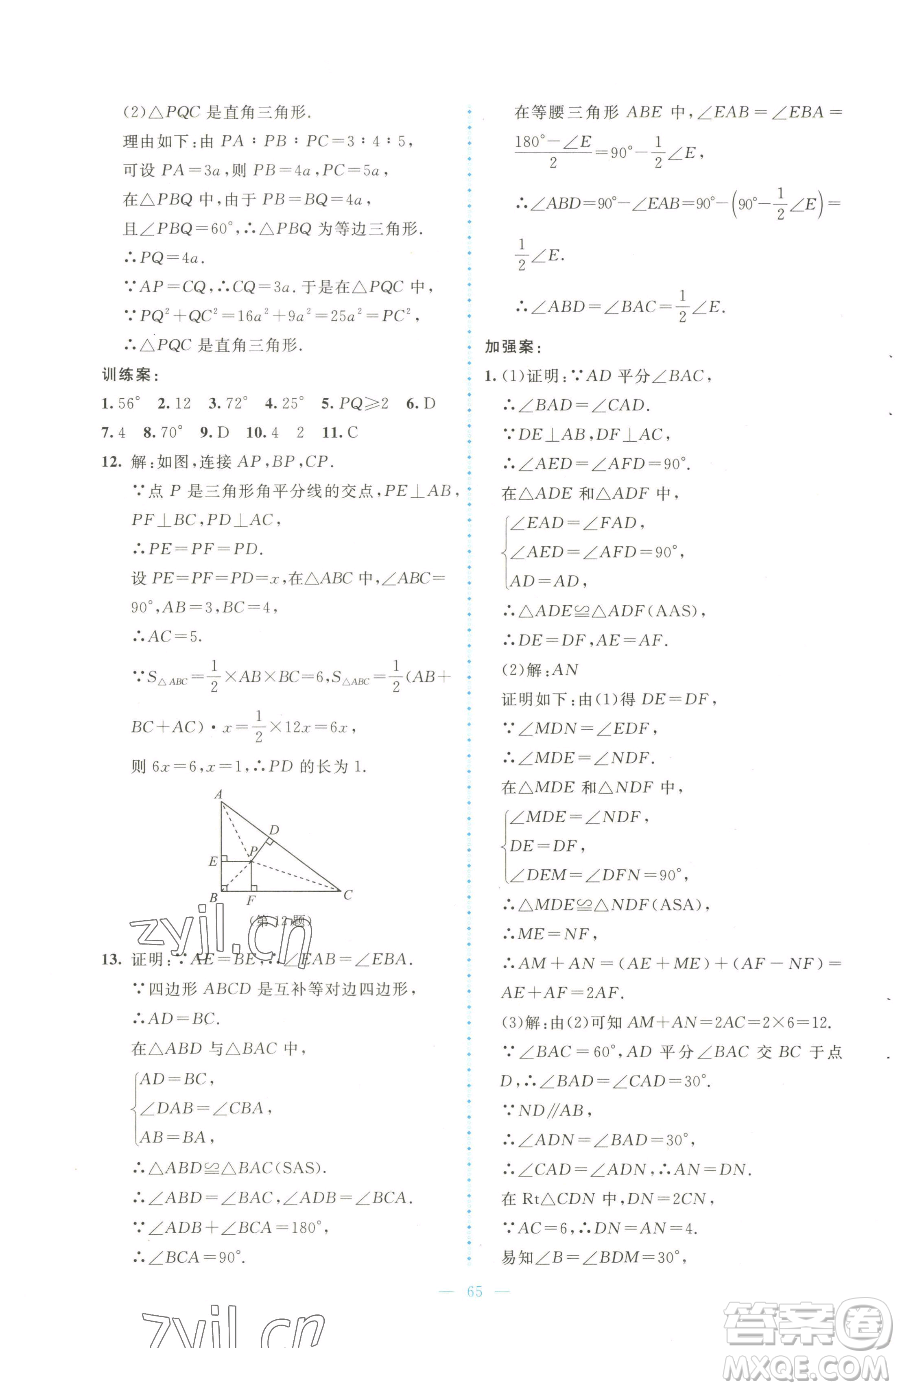 (2)△PQC 是直角三角形.
理由如下:由 PA∶PB∶PC=3∶4∶5,
可设 PA=3a,则 PB=4a,PC=5a,
在△PBQ 中,由于 PB=BQ=4a,
且∠PBQ=60°,∴△PBQ 为等边三角形.
∴PQ=4a.
∵AP=CQ,∴CQ=3a.于是在△PQC 中,
∵PQ²+QC²=16a²+9a²=25a²=PC²,
∴△PQC 是直角三角形.
训练案:
1.56° 2.12 3.72° 4.25° 5.PQ⩾2 6.D
7.4 8.70° 9.D 10.4 2 11.C
12. 解:如图,连接 AP,BP,CP.
∵点 P 是三角形角平分线的交点,PE⊥AB,
PF⊥BC,PD⊥AC,
∴PE=PF=PD.
设 PE=PF=PD=x,在△ABC 中,∠ABC=
90°,AB=3,BC=4,
∴AC=5.
∵S△ABC=1/2×AB×BC=6,S△ABC=1/2(AB+
BC+AC)·x=1/2×12x=6x,
则 6x=6,x=1,∴PD 的长为 1.
A
D
E P
B F C
(第 12 题)
13. 证明:∵AE=BE,∴∠EAB=∠EBA.
∵四边形 ABCD 是互补等对边四边形,
∴AD=BC.
在△ABD 与△BAC 中,
AD=BC,
∠DAB=∠CBA,
AB=BA,
∴△ABD≌△BAC(SAS).
∴∠ABD=∠BAC,∠ADB=∠BCA.
∵∠ADB+∠BCA=180°,
∴∠BCA=90°.
在等腰三角形 ABE 中,∠EAB=∠EBA=
(180°-∠E)/2=90°-1/2∠E,
∴∠ABD=90°-∠EAB=90°-(90°-1/2∠E)=
1/2∠E.
∴∠ABD=∠BAC=1/2∠E.
加强案:
1. (1)证明:∵AD 平分∠BAC,
∴∠BAD=∠CAD.
∵DE⊥AB,DF⊥AC,
∴∠AED=∠AFD=90°.
在△ADE 和△ADF 中,
∠EAD=∠FAD,
∠AED=∠AFD=90°,
AD=AD,
∴△ADE≌△ADF(AAS),
∴DE=DF,AE=AF.
(2)解:AN
证明如下:由(1)得 DE=DF,
∵∠MDN=∠EDF,
∴∠MDE=∠NDF.
在△MDE 和△NDF 中,
∠MDE=∠NDF,
DE=DF,
∠DEM=∠DFN=90°,
∴△MDE≌△NDF(ASA),
∴ME=NF,
∴AM+AN=(AE+ME)+(AF-NF)=
AE+AF=2AF.
(3)解:由(2)可知 AM+AN=2AC=2×6=12.
∵∠BAC=60°,AD 平分∠BAC 交 BC 于点
D,∴∠BAD=∠CAD=30°.
∵ND∥AB,
∴∠ADN=∠BAD=30°,
∴∠CAD=∠ADN,∴AN=DN.
在 Rt△CDN 中,DN=2CN,
∵AC=6,∴DN=AN=4.
易知∠B=∠BDM=30°,
— 65 —
zyjl.cn
zyjl.cn
答案圈
MXQE.COM